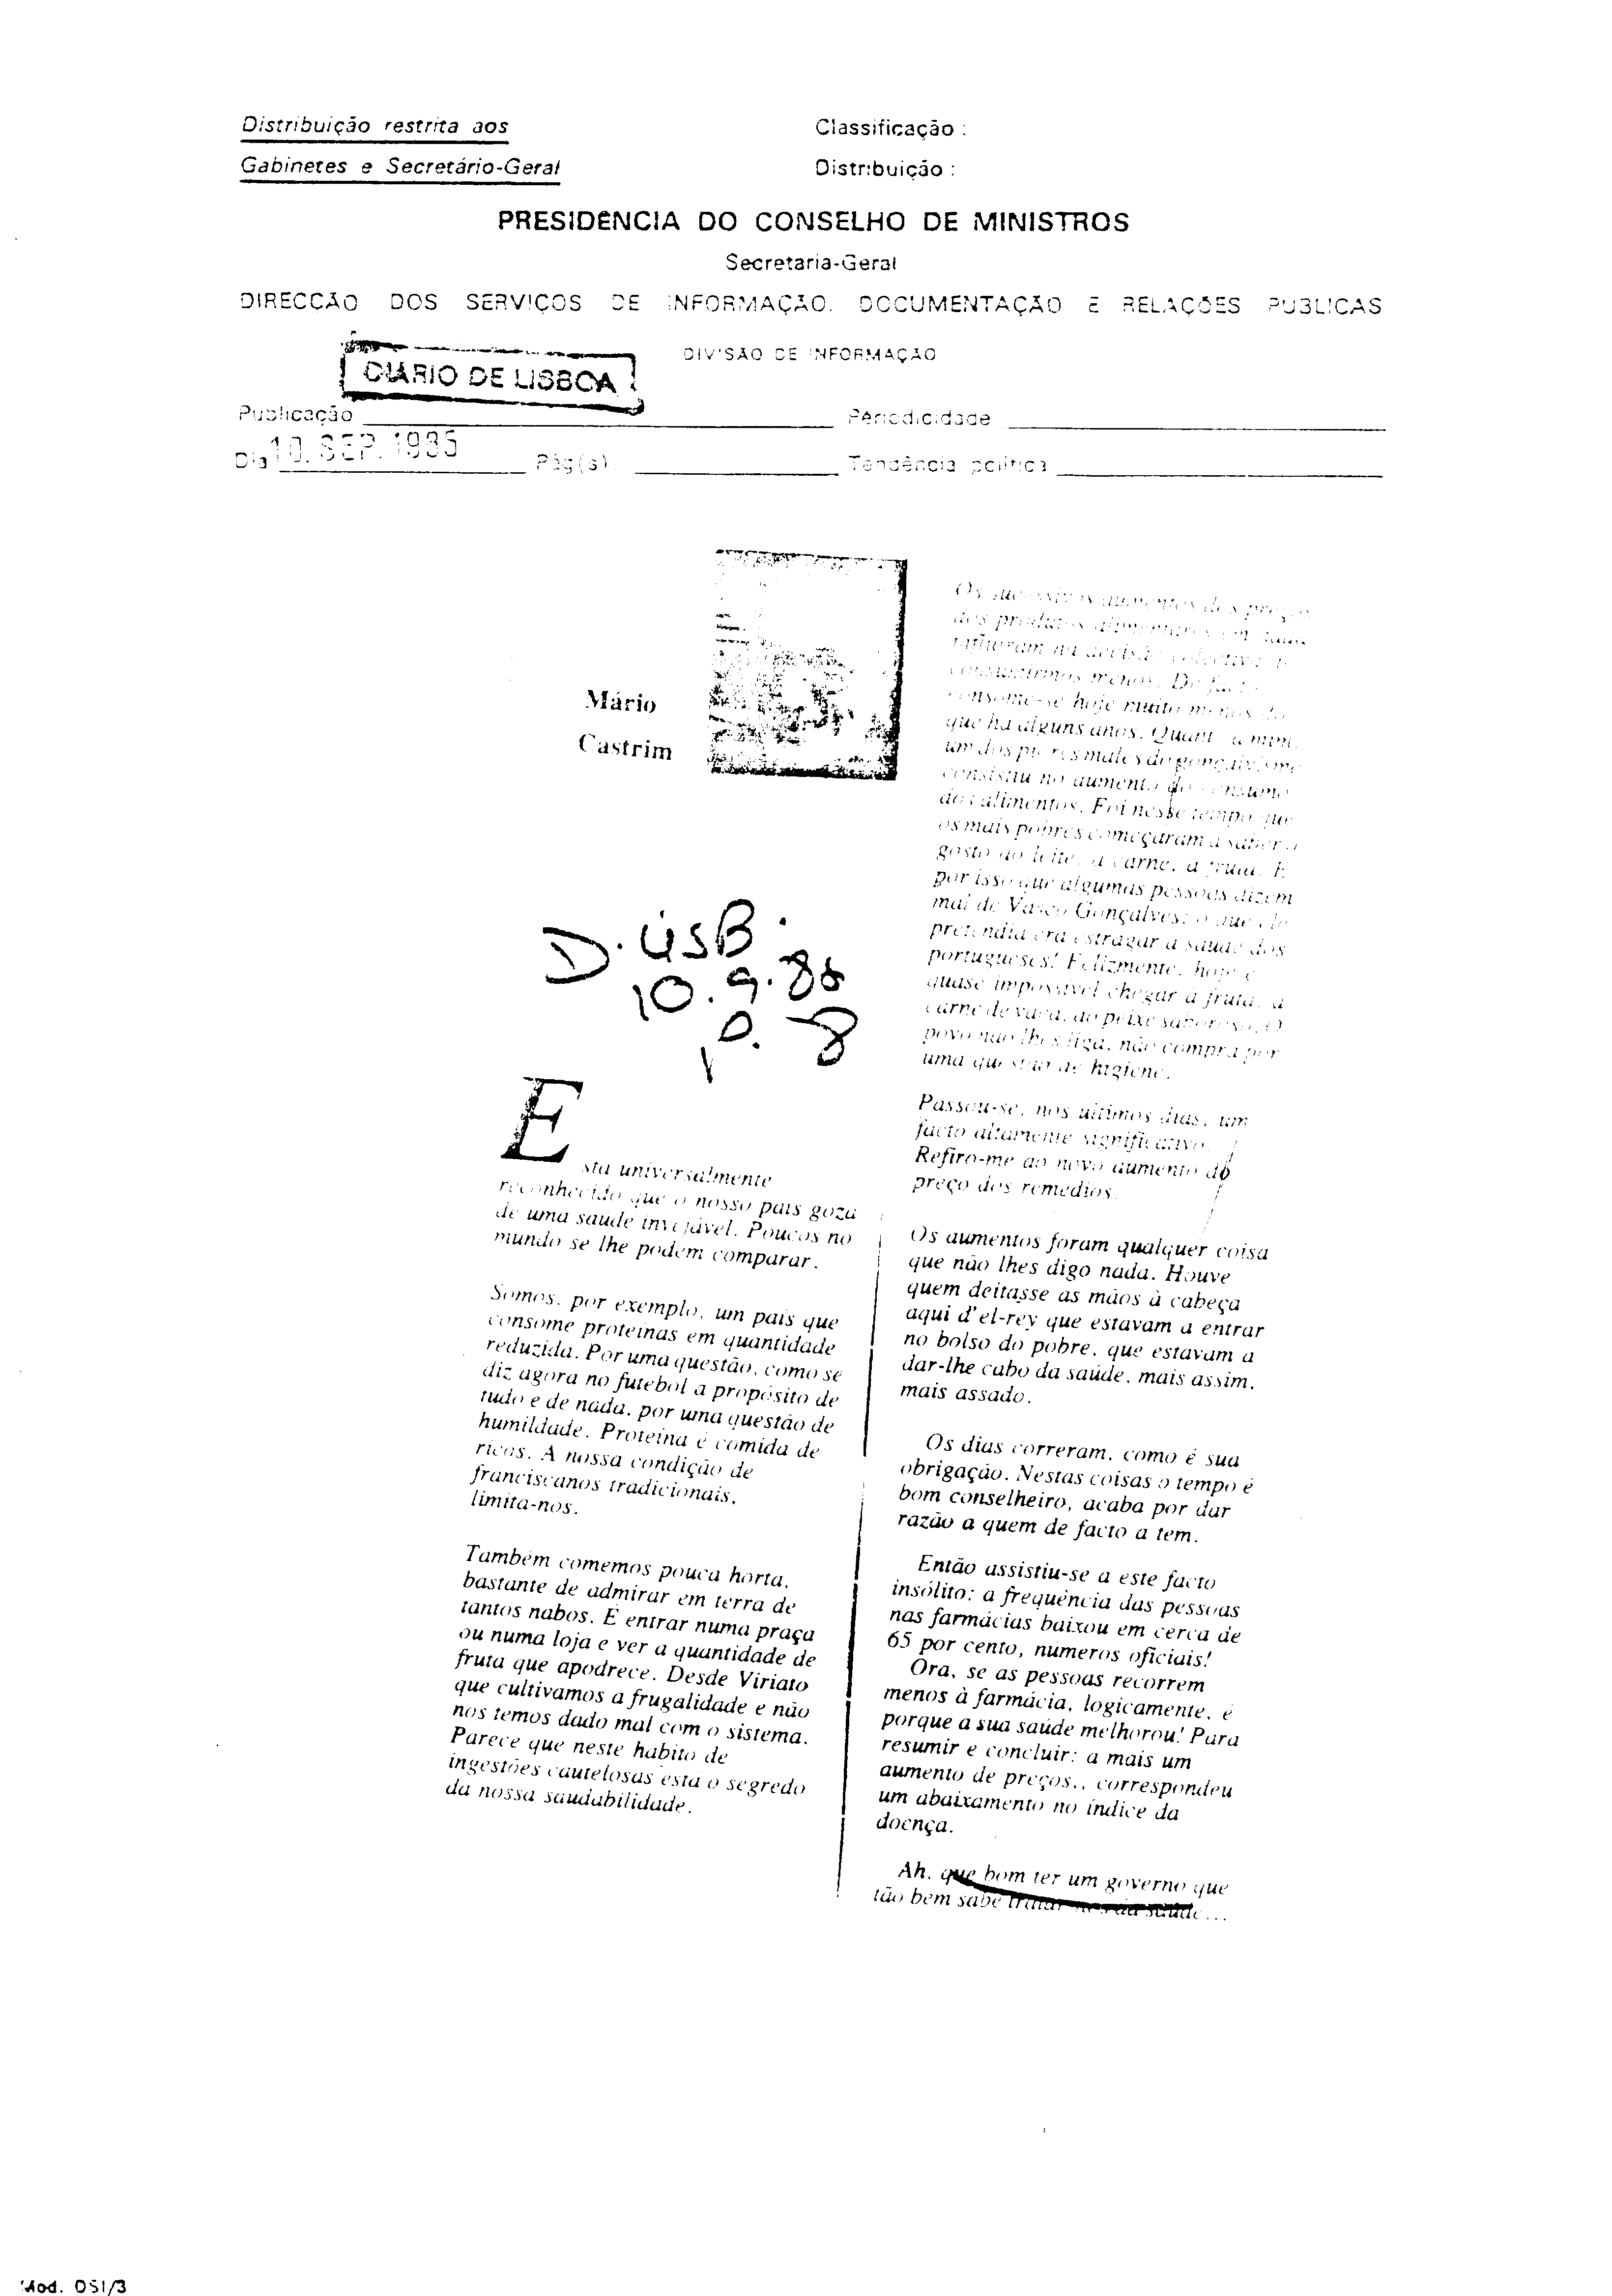 Distribuição restrita aos
Gabinetes e Secretário-Geral
Classificação :
Distribuição :
PRESIDÊNCIA DO CONSELHO DE MINISTROS
Secretaria-Geral
DIRECÇÃO DOS SERVIÇOS DE INFORMAÇÃO, DOCUMENTAÇÃO E RELAÇÕES PÚBLICAS
DIVISÃO DE INFORMAÇÃO
DIÁRIO DE LISBOA
Publicação
Periodicidade
Dia 10. SEP. 1986
Pág(s).
Tendência política
Mário
Castrim
D. LISB.
10.9.86
p. 8
E
stá universalmente
reconhecido que o nosso país goza
de uma saúde invejável. Poucos no
mundo se lhe podem comparar.
Somos, por exemplo, um país que
consome proteínas em quantidade
reduzida. Por uma questão, como se
diz agora no futebol a propósito de
tudo e de nada, por uma questão de
humildade. Proteína é comida de
ricos. A nossa condição de
franciscanos tradicionais,
limita-nos.
Também comemos pouca horta,
bastante de admirar em terra de
tantos nabos. É entrar numa praça
ou numa loja e ver a quantidade de
fruta que apodrece. Desde Viriato
que cultivamos a frugalidade e não
nos temos dado mal com o sistema.
Parece que neste hábito de
ingestões cautelosas está o segredo
da nossa saudabilidade.
Os sucessivos aumentos dos preços
dos produtos alimentares em nada
influíram na decisão colectiva de
consumirmos menos. De facto,
consome-se hoje muito menos do
que há alguns anos. Quanto a mim,
um dos piores males do gonçalvismo
consistiu no aumento do consumo
dos alimentos. Foi nesse tempo que
os mais pobres começaram a saber o
gosto ao leite, à carne, à fruta. É
por isso que algumas pessoas dizem
mal de Vasco Gonçalves: o que ele
pretendia era estragar a saúde dos
portugueses! Felizmente, hoje é
quase impossível chegar à fruta, à
carne de vaca, ao peixe saboroso. O
povo não lhes liga, não compra por
uma questão de higiene.
Passou-se, nos últimos dias, um
facto altamente significativo.
Refiro-me ao novo aumento do
preço dos remédios.
Os aumentos foram qualquer coisa
que não lhes digo nada. Houve
quem deitasse as mãos à cabeça
aqui d'el-rey que estavam a entrar
no bolso do pobre, que estavam a
dar-lhe cabo da saúde, mais assim,
mais assado.
Os dias correram, como é sua
obrigação. Nestas coisas o tempo é
bom conselheiro, acaba por dar
razão a quem de facto a tem.
Então assistiu-se a este facto
insólito: a frequência das pessoas
nas farmácias baixou em cerca de
65 por cento, números oficiais!
Ora, se as pessoas recorrem
menos à farmácia, logicamente, é
porque a sua saúde melhorou! Para
resumir e concluir: a mais um
aumento de preços., correspondeu
um abaixamento no índice da
doença.
Ah, que bom ter um governo que
tão bem sabe tratar-nos da saúde...
Mod. DSI/3